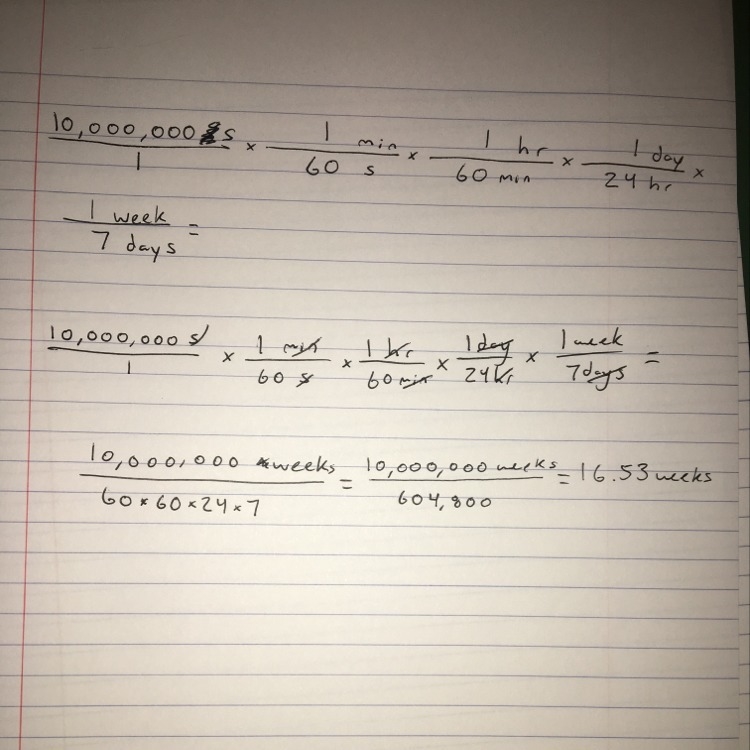 10,000,000 s/1 × 1 min/60 s × 1 hr/60 min × 1 day/24 hr ×
1 week/7 days =
10,000,000 s/1 × 1 min/60 s × 1 hr/60 min × 1 day/24 hr × 1 week/7 days =
10,000,000 weeks/60×60×24×7 = 10,000,000 weeks/604,800 = 16.53 weeks